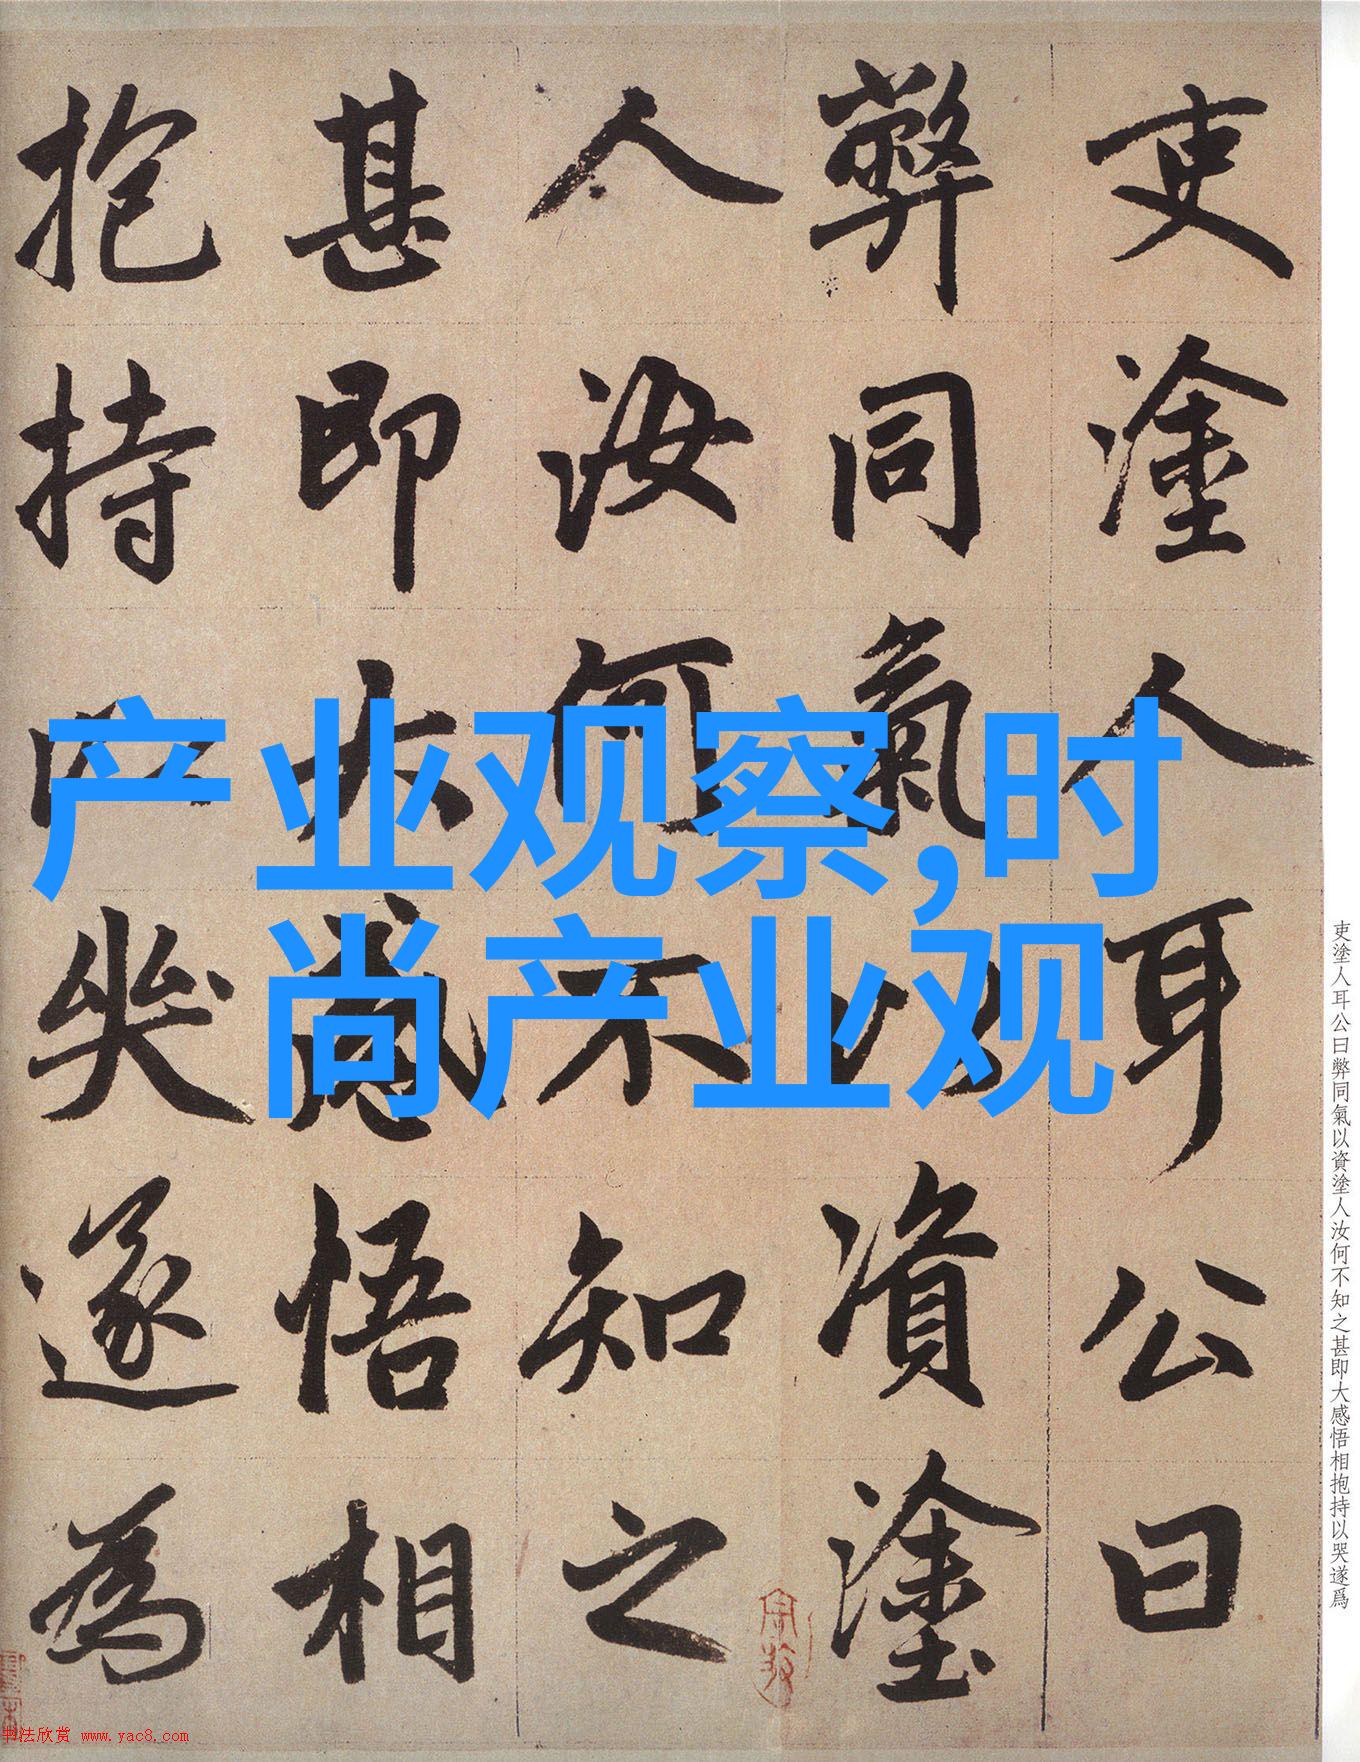 吏塗人耳公曰
弊同氣以資塗
人汝何不知之
甚即大感悟相
抱持以哭遂為
产业观察,时
尚产业观
吏塗人耳公曰弊同氣以資塗人汝何不知之甚即大感悟相抱持以哭遂爲
书法欣赏 www.yac8.com